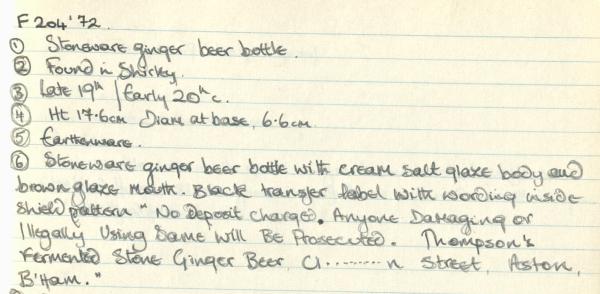 F204'72.
① Stoneware ginger beer bottle.
② Found in Shirley.
③ Late 19th / Early 20th c.
④ Ht 17.6cm Diam at base, 6.6cm
⑤ Earthenware.
⑥ Stoneware ginger beer bottle with cream salt glaze body and
brown glaze mouth. Black transfer label with wording inside
shield pattern "No Deposit charged. Anyone Damaging or
Illegally Using Same Will Be Prosecuted. Thompson's
Fermented Stone Ginger Beer, Cl.........n Street, Aston,
B'Ham."